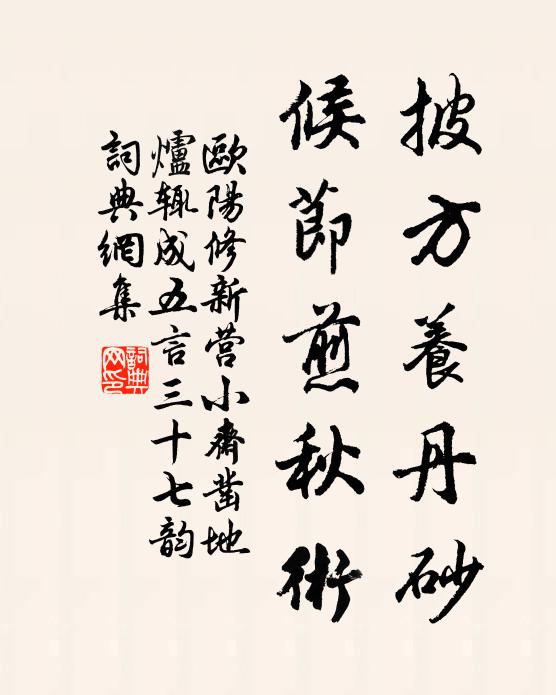 披方養丹砂
候節煎秋術
歐陽修新营小齋凿地
爐辄成五言三十七韵
詞典網集
詞典
网印